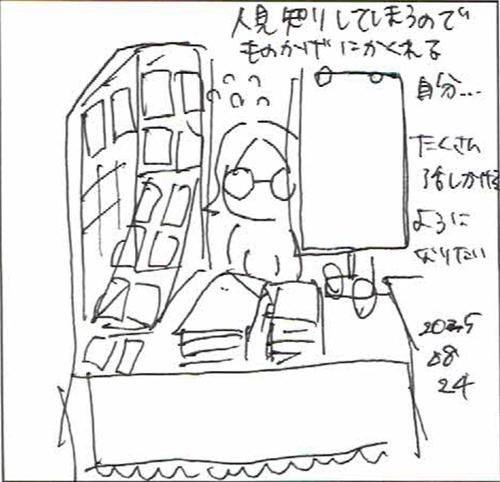 人見知りしてしまうので
ものかげにかくれる
自分…
たくさん
話しかける
ように
なりたい
2025
08
24